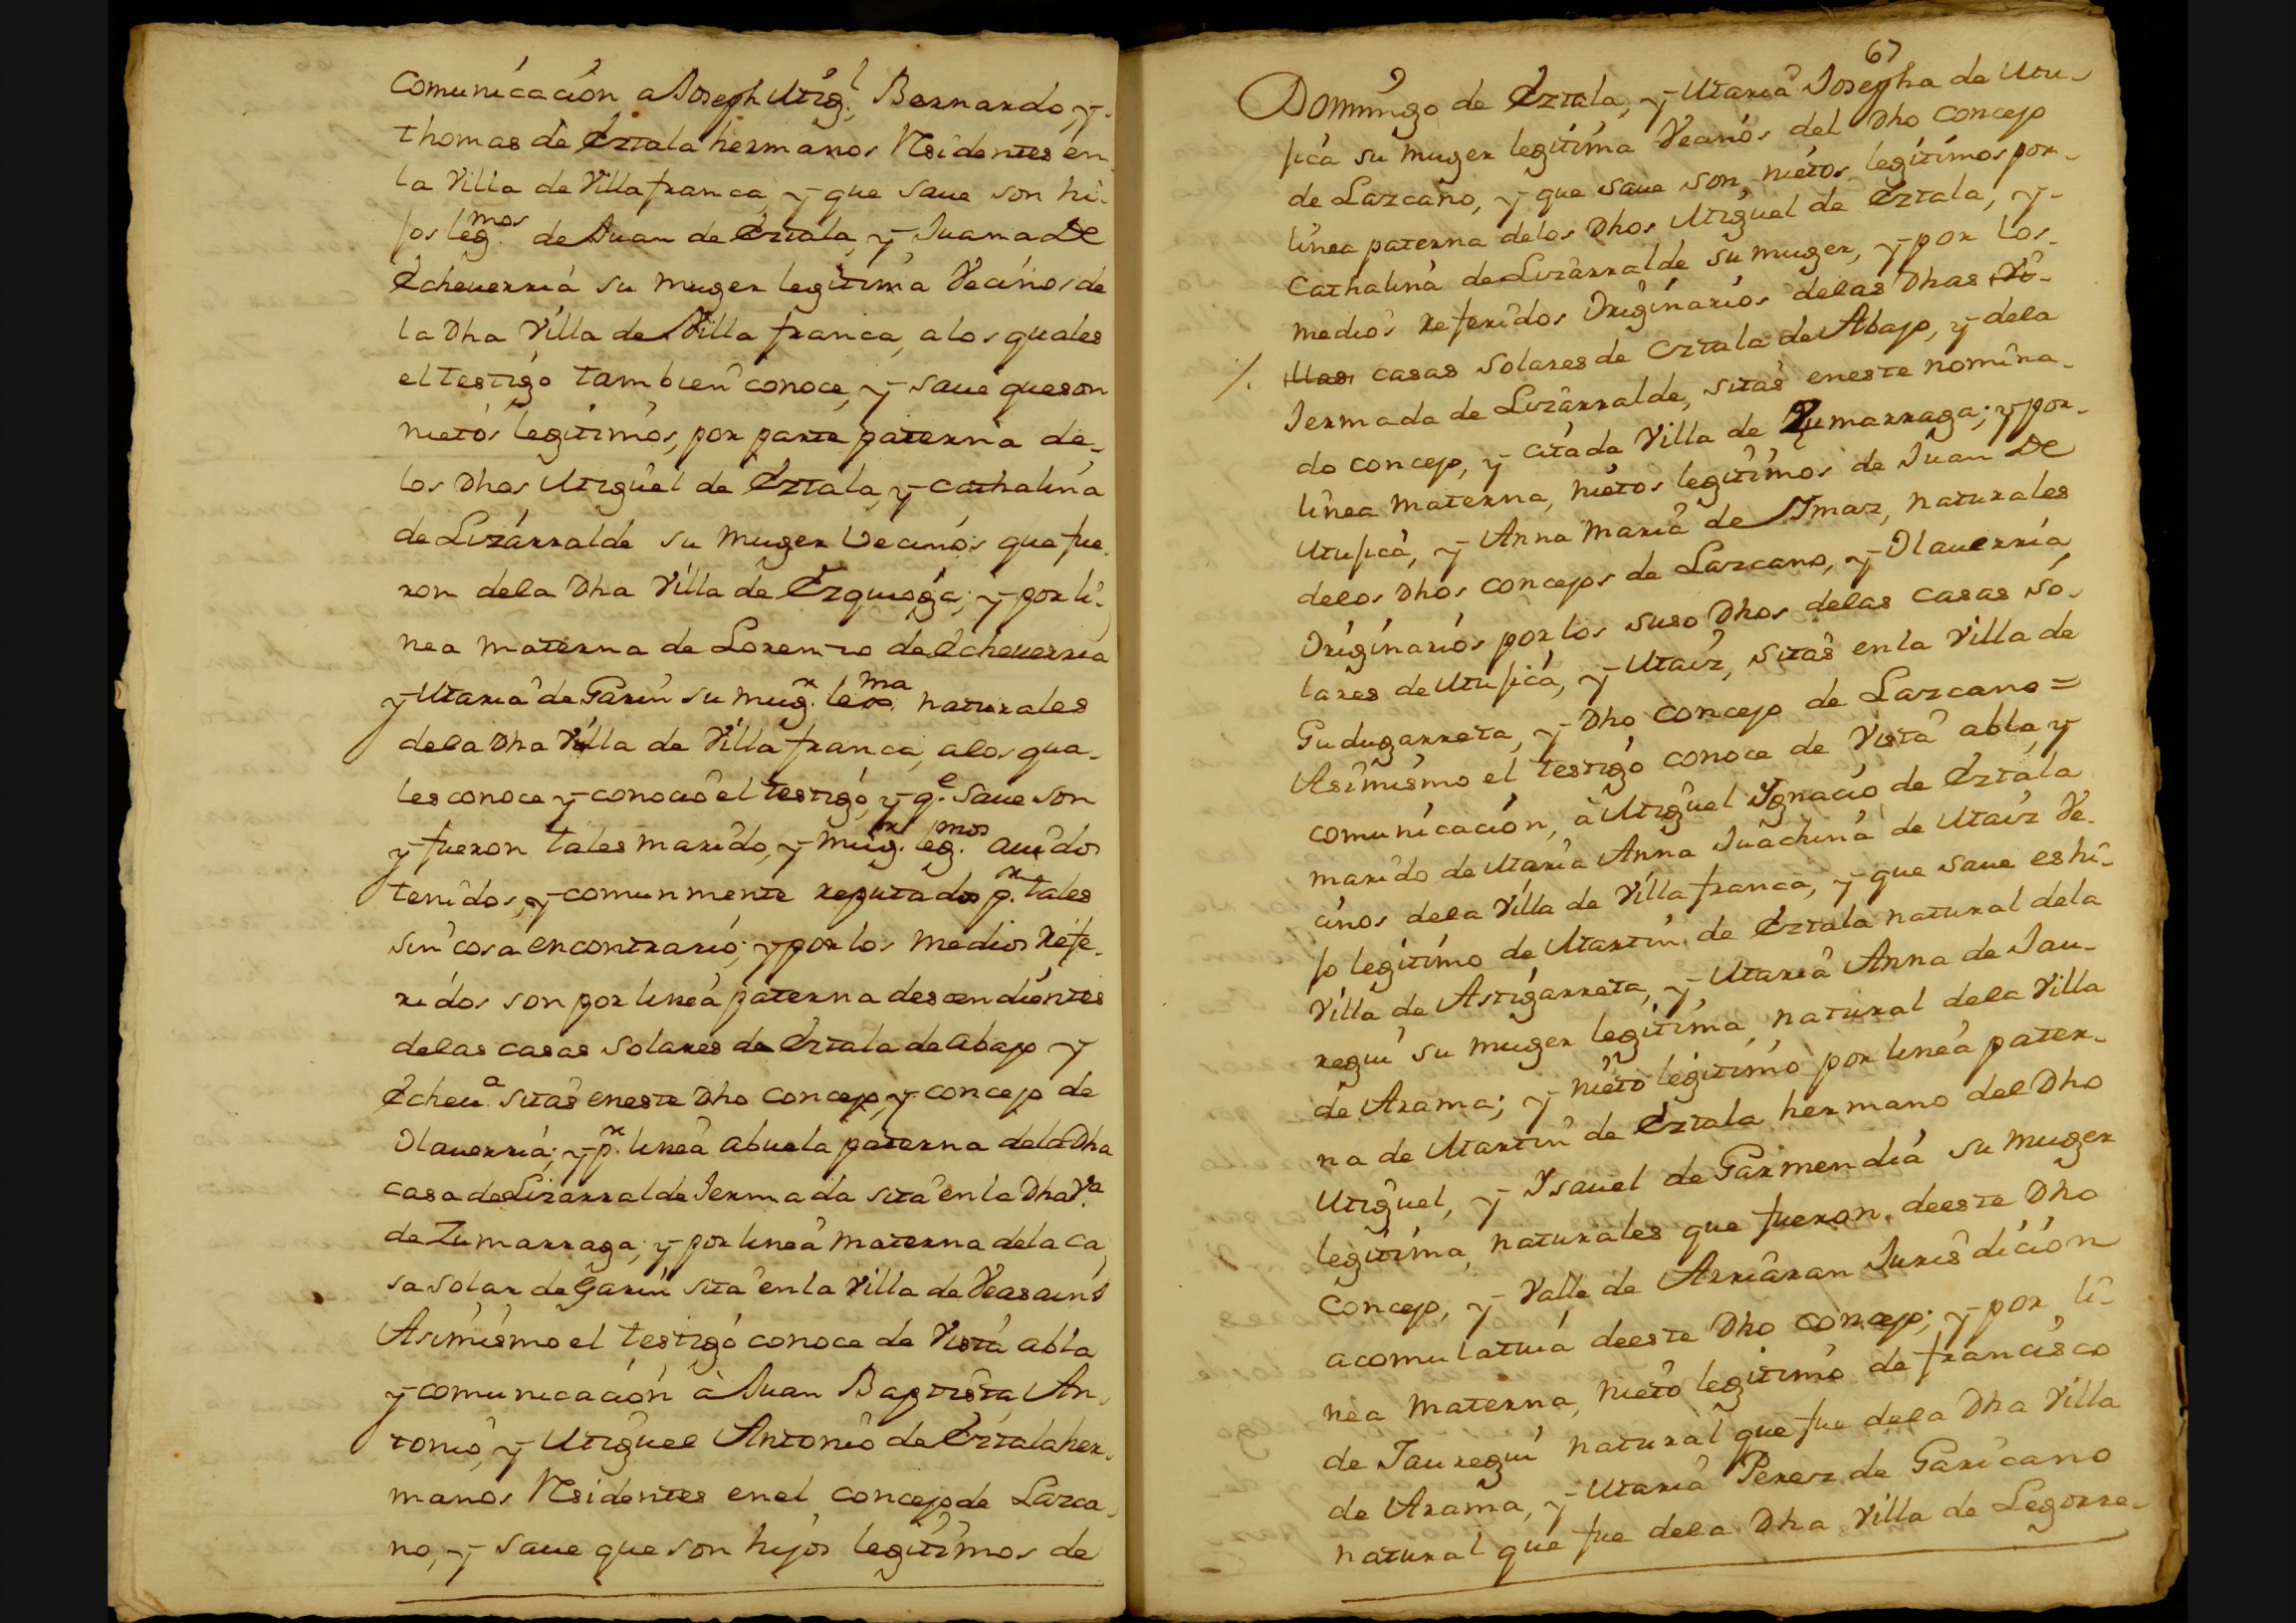 Comunicación a Joseph Migl. Bernardo, y
thomas de Eztala hermanos Residentes en
la Villa de Villafranca, y que saue son hi-
jos legmos. de Juan de Eztala, y Juana de
Echeuerria su muger legitima Vecinos de
la Dha Villa de Villa franca, a los quales
el testigo tambien conoce, y saue que son
nietos legitimos, por parte paterna de-
los Dhos Miguel de Eztala, y Cathalina
de Lizarralde su muger Vecinos que fue-
ron dela Dha Villa de Ezquioga; y por li-
nea materna de Lorenzo de Echeuerria
y Maria de Garin su mugr. lexma. naturales
dela Dha Villa de Villa franca, alos qua-
les conoce y conocio el testigo, y qe. saue son
y fueron tales marido, y mugr. legmos. auidos
tenidos, y comunmente reputados pr. tales
sin cosa en contrario; y por los medios refe-
ridos son por linea paterna descendientes
delas casas solares de Eztala de abajo y
Echeua. sitas en este Dho concejo, y concejo de
Olauerria; y pr. linea abuela paterna dela Dha
casa de Lizarralde Jermada sita en la Dha Va.
de Zumarraga; y por linea materna dela ca-
sa solar de Garin sita en la Villa de Veasain=
Asimismo el testigo conoce de Vista abla
y comunicación à Juan Baptista, An-
tonio, y Miguel Antonio de Eztala her-
manos Residentes en el concejo de Lazca-
no, y saue que son hijos legitimos de
67
Domingo de Eztala, y Maria Josepha de Mu-
jica su muger legitima Vecinos del Dho concejo
de Lazcano, y que saue son nietos legitimos por
linea paterna delos Dhos Miguel de Eztala, y
Cathalina de Lizarralde su muger, y por los
medios referidos Originarios delas Dhas So-
/. llas casas solares de Eztala de Abajo, y dela
Jermada de Lizarralde, sitas en este nomina-
do concejo, y citada Villa de Zumarraga; y por
linea materna, nietos legitimos de Juan de
Mujica, y Anna Maria de Imaz, naturales
delos Dhos concejos de Lazcano, y Olauerria
Originarios por los suso Dhos delas casas so-
lares de Mujica, y Maiz, sitas en la Villa de
Gudugarreta, y Dho concejo de Lazcano=
Asimismo el testigo conoce de Vista abla y
comunicación, à Miguel Ygnacio de Eztala
marido de Maria Anna Juachina de Maiz Ve-
cinos dela Villa de Villa franca, y que saue es hi-
jo legitimo de Martin de Eztala natural dela
Villa de Astigarreta, y Maria Anna de Jau-
regui su muger legitima, natural dela Villa
de Arama; y nieto legitimo por linea pater-
na de Martin de Eztala hermano del Dho
Miguel, y Ysauel de Garmendia su muger
legitima, naturales que fueron de este Dho
Concejo, y Valle de Arriaran Jurisdición
acomulatiua de este Dho concejo; y por li-
nea materna, nieto legitimo de francisco
de Jauregui natural que fue dela Dha Villa
de Arama, y Maria Perez de Garicano
natural que fue dela Dha Villa de Legorre-